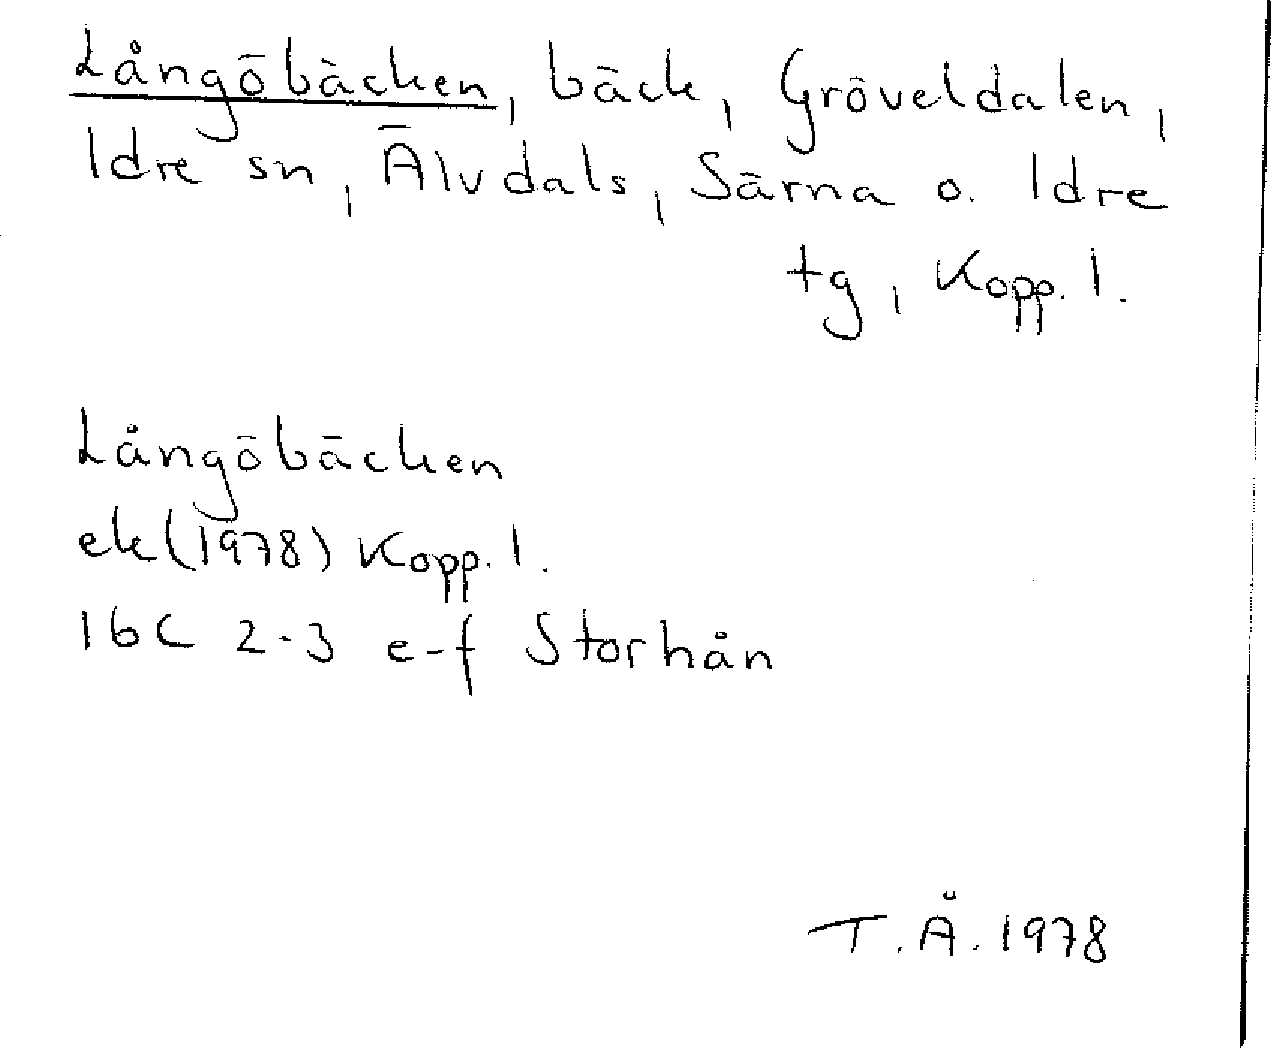 Långöbäcken, bäck, Gröveldalen,
Idre sn, Älvdals, Särna o. Idre
tg, Kopp. l.
Långöbäcken
ek (1978) Kopp. l.
16C 2-3 e-f Storhån
T. Å. 1978